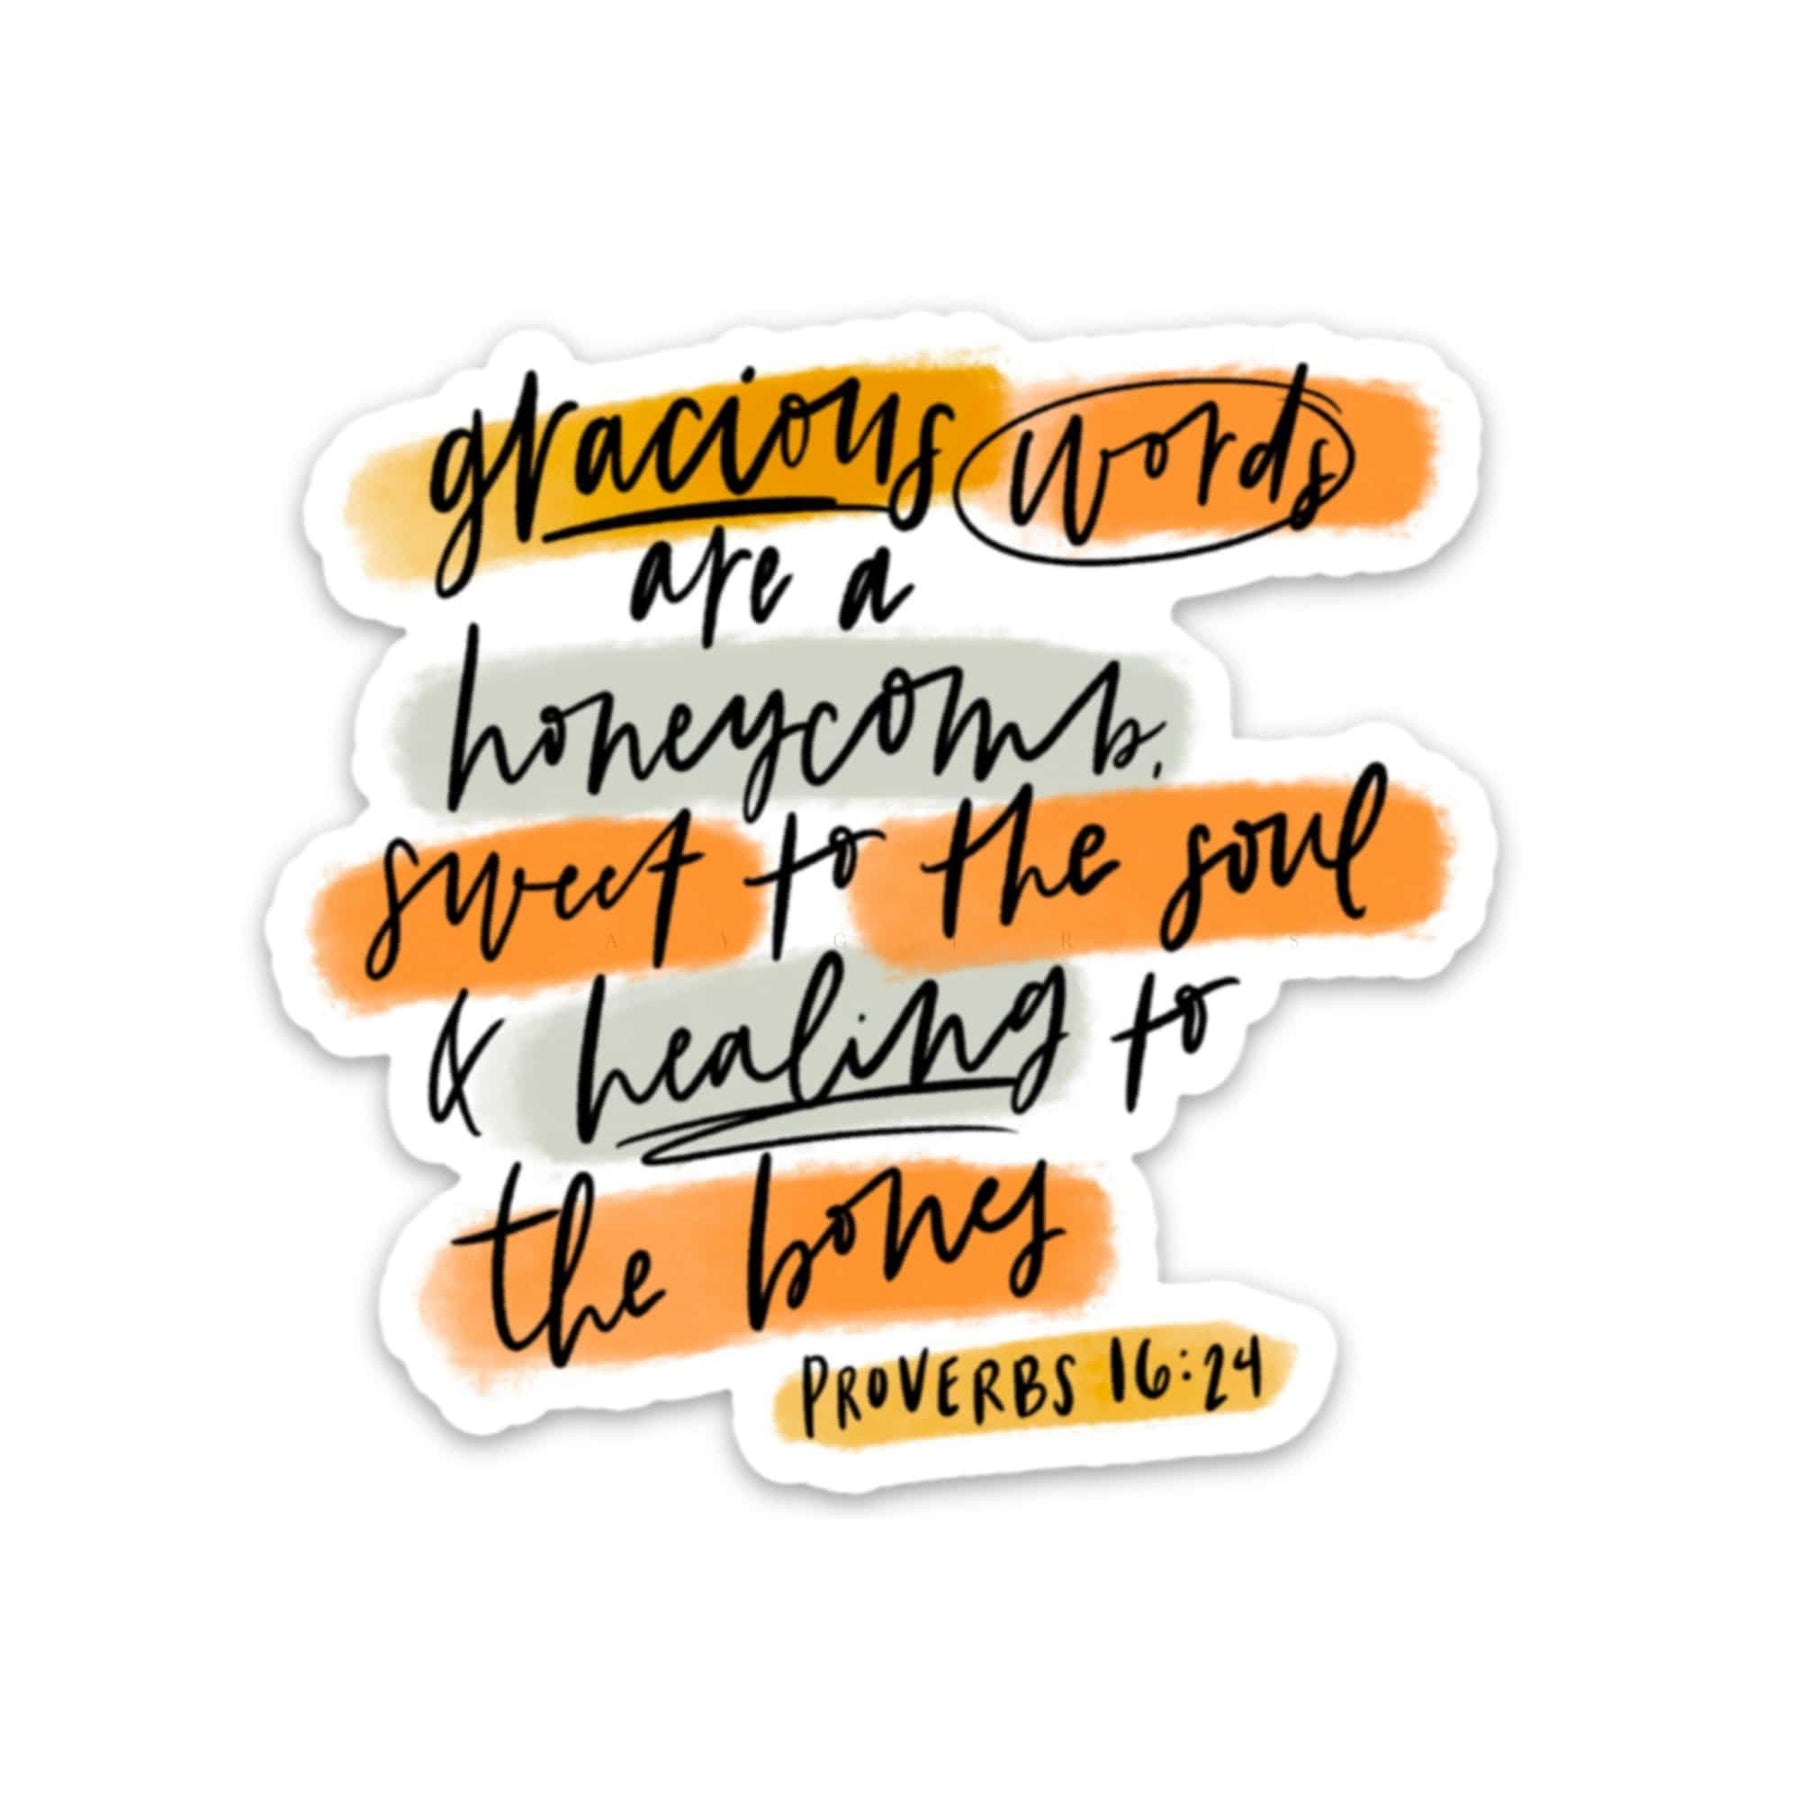 gracious words
are a
honeycomb,
sweet to the soul
& healing to
the bones
PROVERBS 16:24